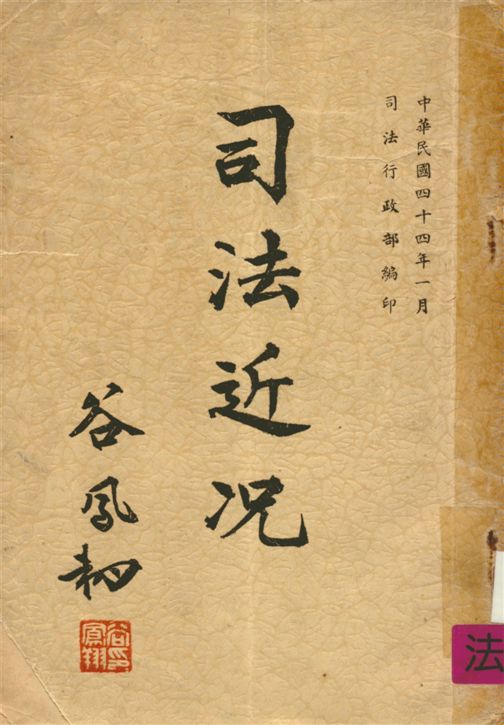 中華民國四十四年一月
司法行政部編印
司法近況
谷鳳翔
谷鳳翔印
法